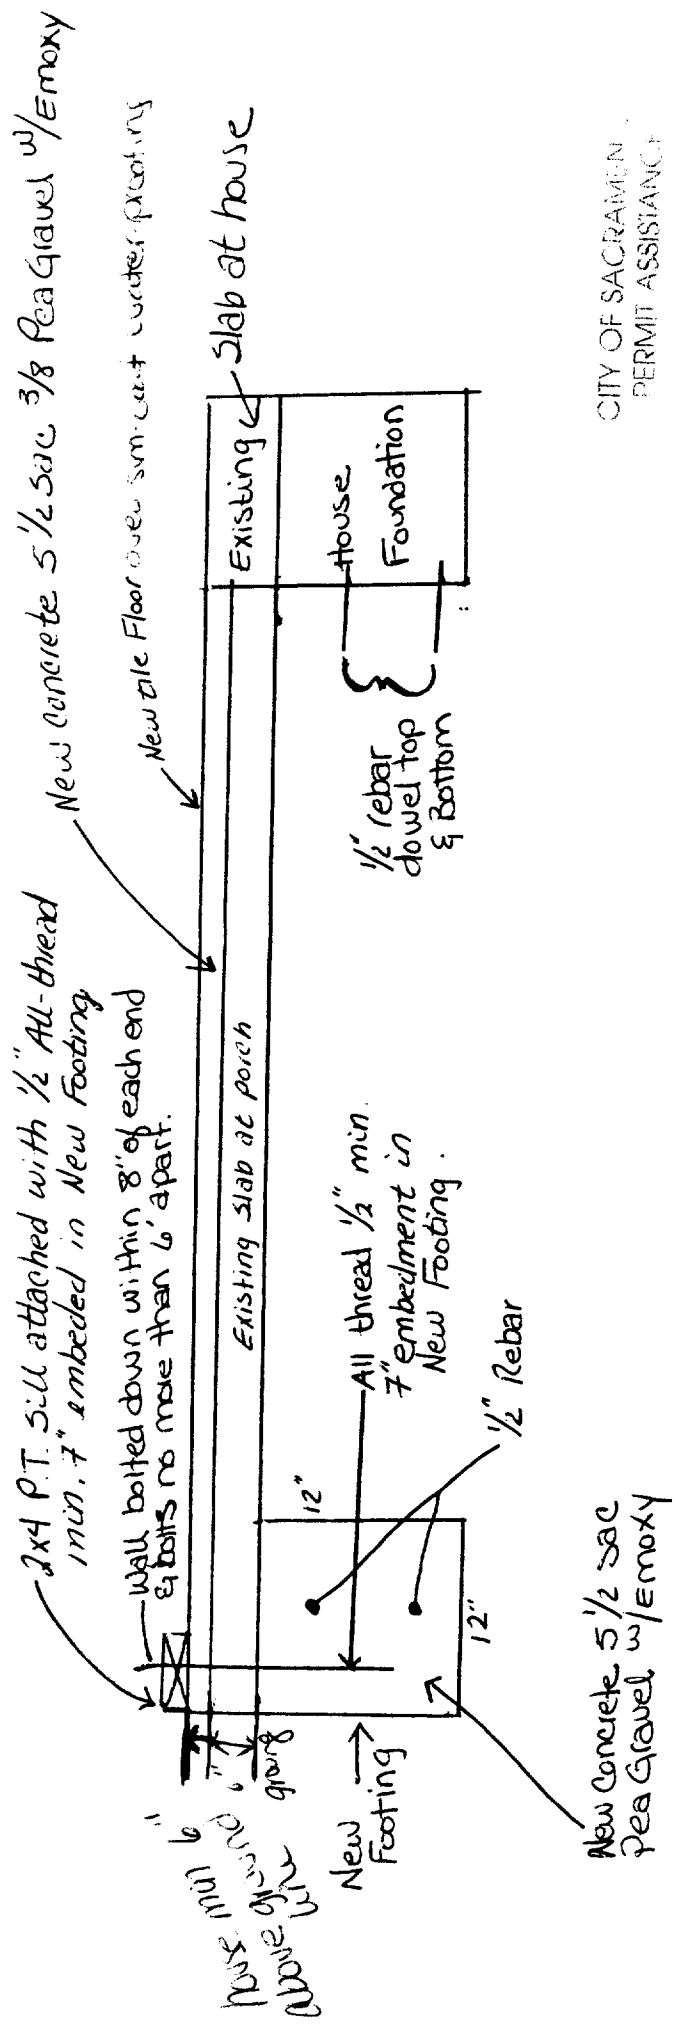 2x4 P.T. Sill attached with 1/2" All-thread
min. 7" embeded in New Footing
Wall bolted down within 8" of each end
& bolts no more than 6' apart.
New Concrete 5 1/2 Sac 3/8 Pea Gravel w/Emoxy
New tile Floor over water-proofing
Slab at house
Existing
Existing Slab at porch
House
Foundation
1/2" rebar
dowel top
& Bottom
All thread 1/2" min.
7" embedment in
New Footing.
1/2" Rebar
12"
12"
house min 6"
above ground
line
6"
New
Footing
New Concrete 5 1/2 Sac
Pea Gravel w/Emoxy
CITY OF SACRAMEN
PERMIT ASSISTANC